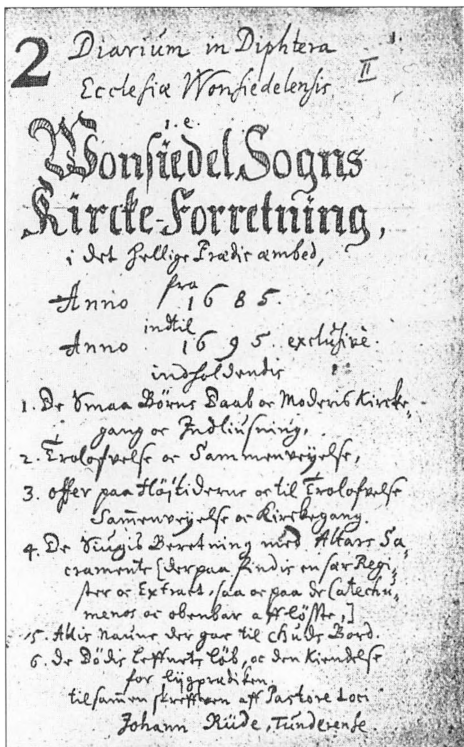 2 Diarium in Diphtera 1.
Ecclesiæ Wonsiedelensis II
i.e.
Wonsiedel Sogns
Kircke-Forretning,
i det hellige Prædicæmbed,
fra
Anno 1685.
indtil
Anno 1695. exclusivè.
indholdendis
1. De Smaa Börns Daab oc Moderis Kircke-
gang oc Indliusning,
2. Trolofvelse oc Sammenveyelse,
3. offer paa Höjtiderne oc til Trolofvelse
Sam̄enveyelse oc Kirckegang.
4. De Siugis Beretning med Altars Sa-
cramente [der paa findis en sær Regi-
ster oc Extract, saa oc paa de Catechu-
menos oc obenbar afflöste,]
5. Allis naune der gar til Bord.
6. de Dödis leffnets löb, oc den kiendelse
for liigprædiken.
tilsam̄en skreffven aff Pastore Loci
Johann Rüde, Tunderense